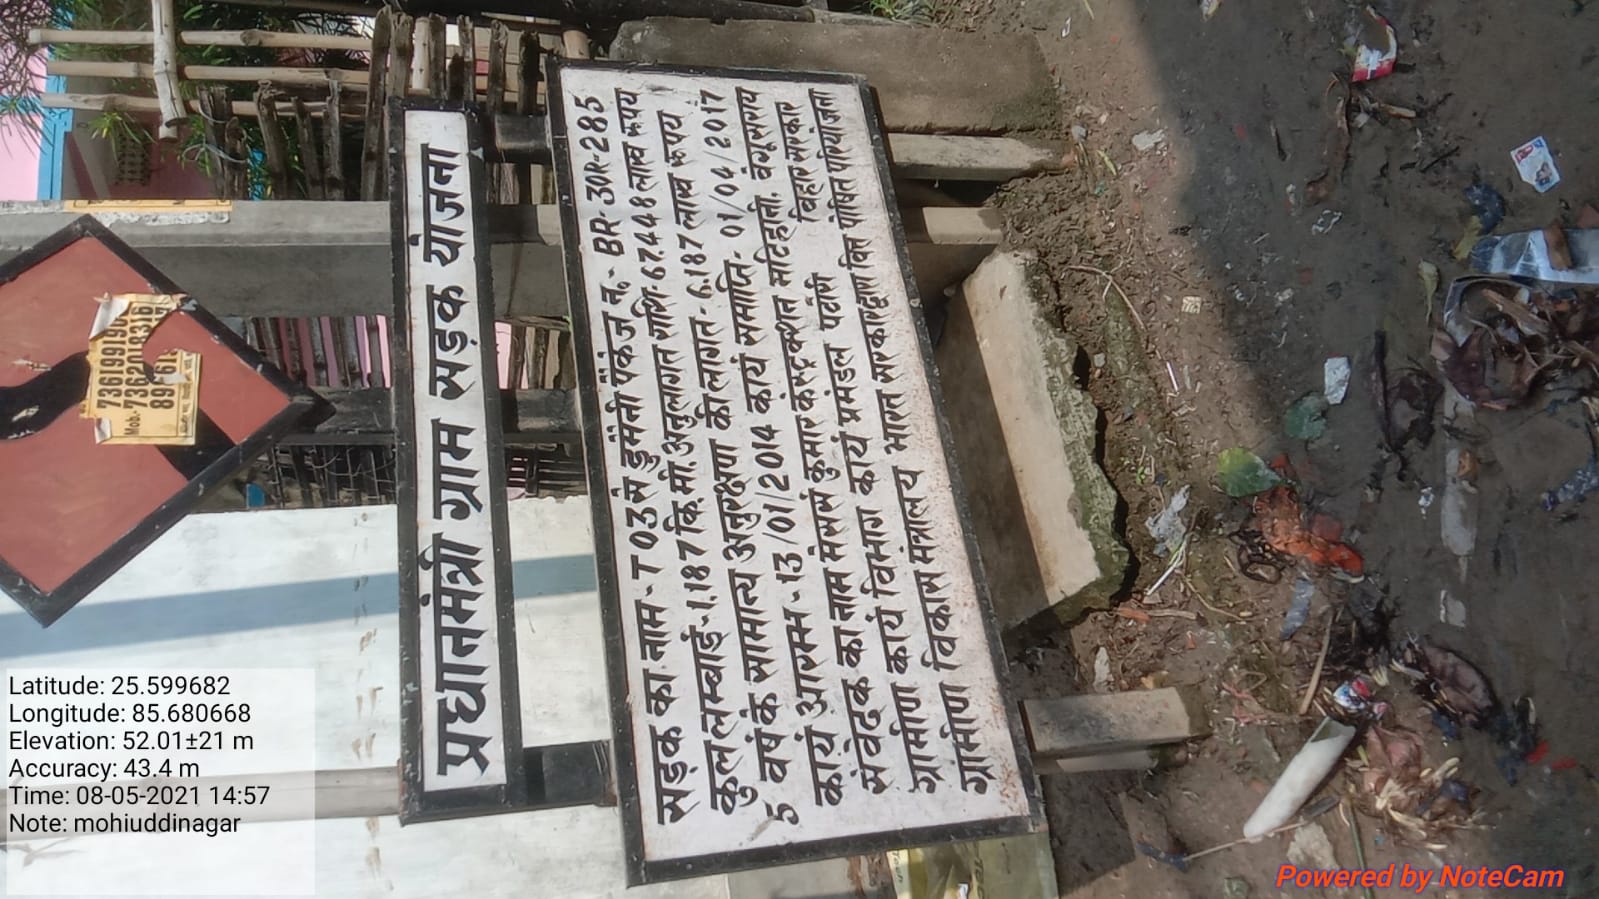 प्रधानमंत्री ग्राम सड़क योजना
सड़क का नाम - T 03 से डुमैनी पैकेज न.- BR-30R-285
कुल लम्बाई - 1.187 कि.मी. अनुलागत राशि - 67.448 लाख रूपय
5 वर्ष के सामान्य अनुरक्षण की लागत - 6.187 लाख रूपय
कार्य आरम्भ - 13/01/2014 कार्य समाप्ति - 01/04/2017
संवेदक का नाम मेसर्स कुमार कंस्ट्रक्शन मटिहानी, बेगूसराय
ग्रामीण कार्य विभाग कार्य प्रमंडल पटोरी बिहार सरकार
ग्रामीण विकास मंत्रालय भारत सरकार द्वारा वित पोषित परियोजना
Mob.- 7361991906
7362018316
Latitude: 25.599682
Longitude: 85.680668
Elevation: 52.01±21 m
Accuracy: 43.4 m
Time: 08-05-2021 14:57
Note: mohiuddinagar
Powered by NoteCam